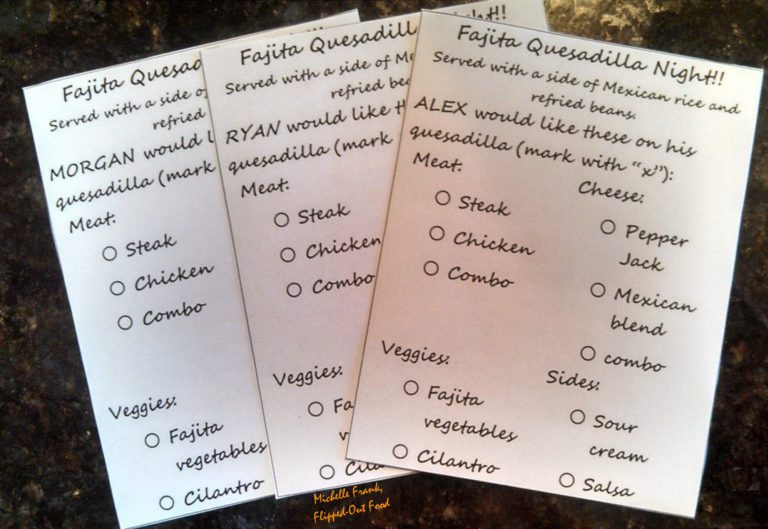 Fajita Quesad
Served with a side o
refried
MORGAN would
quesadilla (mark
Meat:
Steak
Chicken
Combo
Veggies:
Fajita
vegetables
Cilantro
Fajita Quesadill
Served with a side of M
refried be
RYAN would like
quesadilla (mark
Meat:
Steak
Chicken
Combo
Veggies:
Fa
Fajita Quesadilla Night!!
Served with a side of Mexican rice and
refried beans.
ALEX would like these on his
quesadilla (mark with "x"):
Meat:
Steak
Chicken
Combo
Veggies:
Fajita
vegetables
Cilantro
Cheese:
Pepper
Jack
Mexican
blend
combo
Sides:
Sour
cream
Salsa
Michelle Frank,
Flipped-Out Food